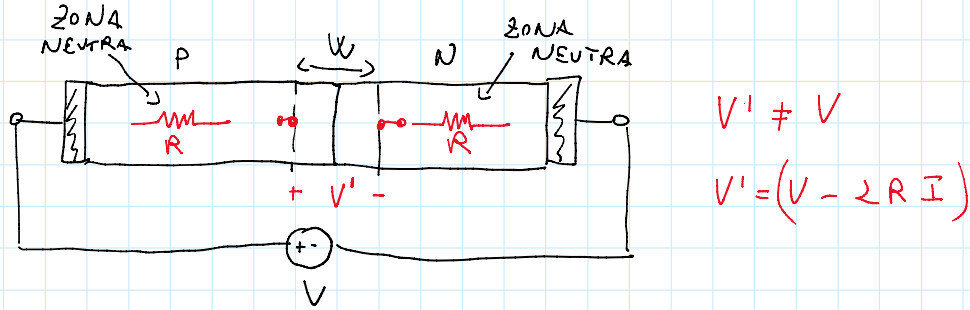 ZONA
NEUTRA
P
W
N
ZONA
NEUTRA
R
R
+ V' -
+ -
V
V' ≠ V
V' = (V - 2 R I)